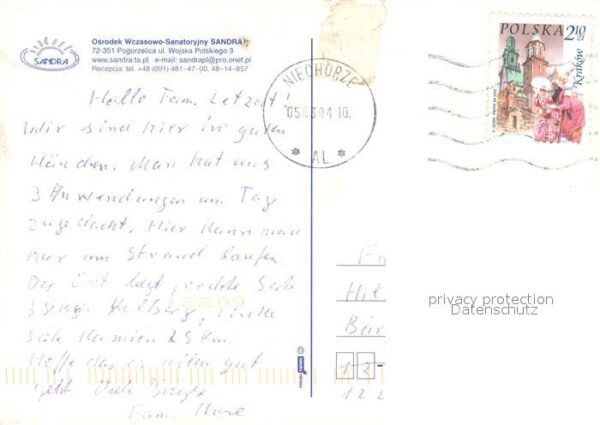 SANDRA
Ośrodek Wczasowo-Sanatoryjny SANDRA
72-351 Pogorzelica ul. Wojska Polskiego 3
www.sandra.ta.pl e-mail: sandrapl@pro.onet.pl
Recepcja: tel. +48 (091) 481-47-00, 48-14-857
POLSKA 2,10 zł
Kraków
NIECHORZE
05.03.04 10.
* AL *
Hello Fam. Letzelt!
Wir sind hier in guten
Händen. Man hat uns
3 Anwendungen am Tag
zugedacht. Hier kann man
nur am Strand laufen.
Der Ort liegt, rechte Seite
Kolberg, linke
Seite Kamien 25 km.
Hoffe das es allen gut
geht. Viele Grüße
Fam.
Fa
Hil
Bär
12-
122
privacy protection
Datenschutz